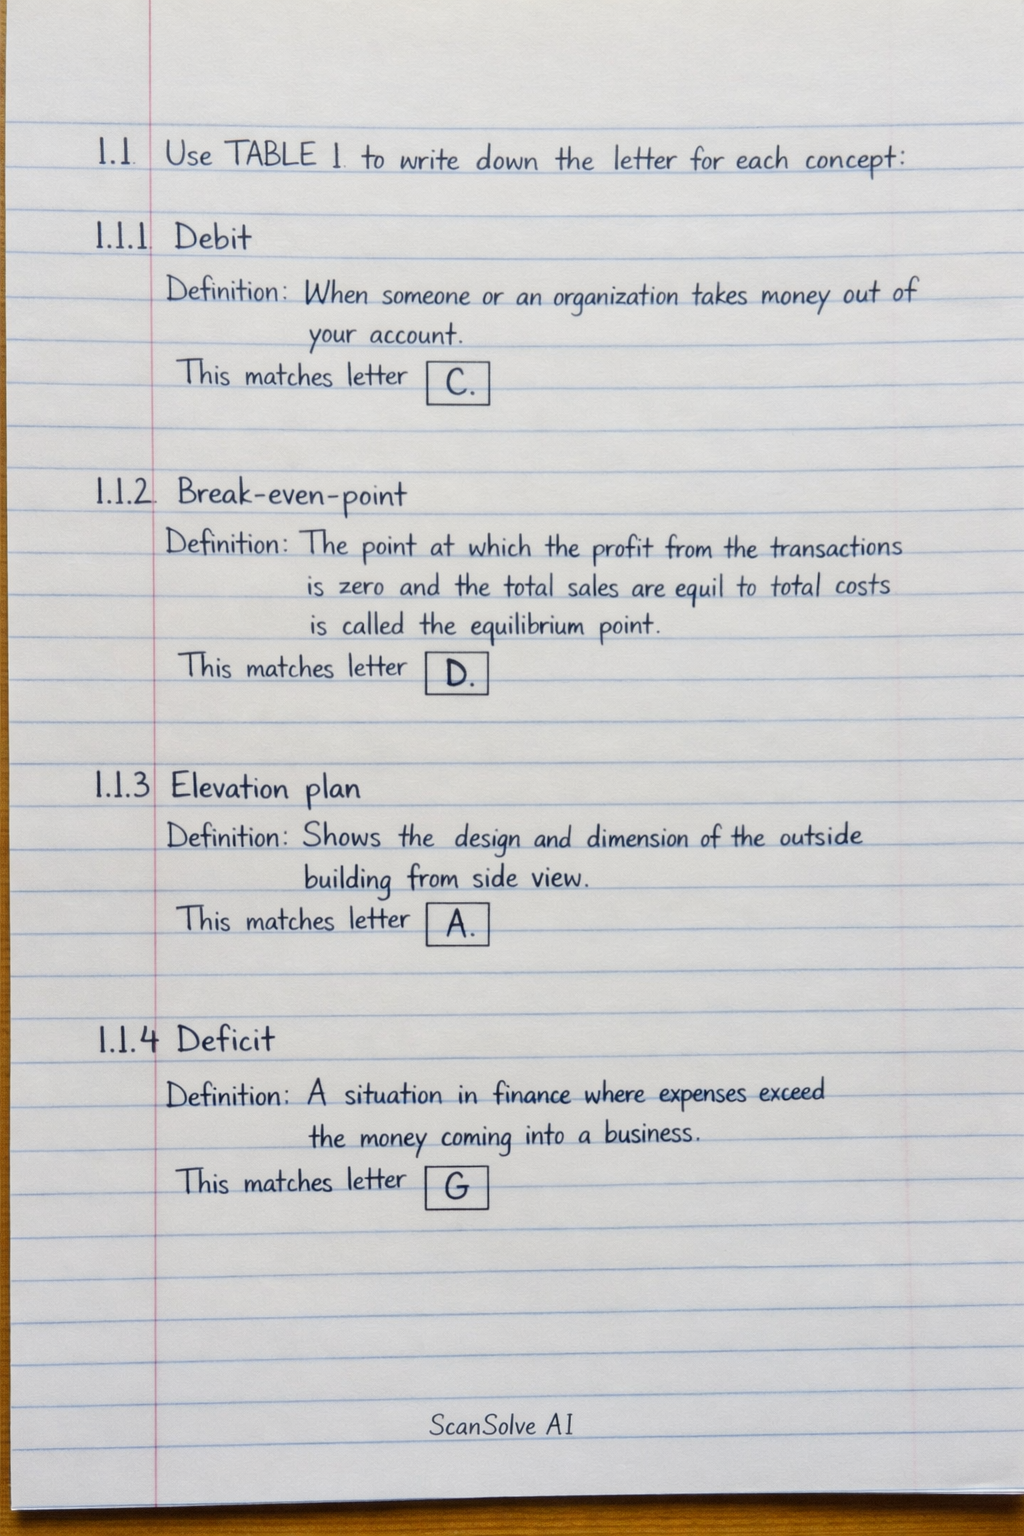 1.1. Use TABLE 1. to write down the letter for each concept:
1.1.1. Debit
Definition: When someone or an organization takes money out of
your account.
This matches letter C.
1.1.2. Break-even-point
Definition: The point at which the profit from the transactions
is zero and the total sales are equil to total costs
is called the equilibrium point.
This matches letter D.
1.1.3 Elevation plan
Definition: Shows the design and dimension of the outside
building from side view.
This matches letter A.
1.1.4 Deficit
Definition: A situation in finance where expenses exceed
the money coming into a business.
This matches letter G
ScanSolve AI